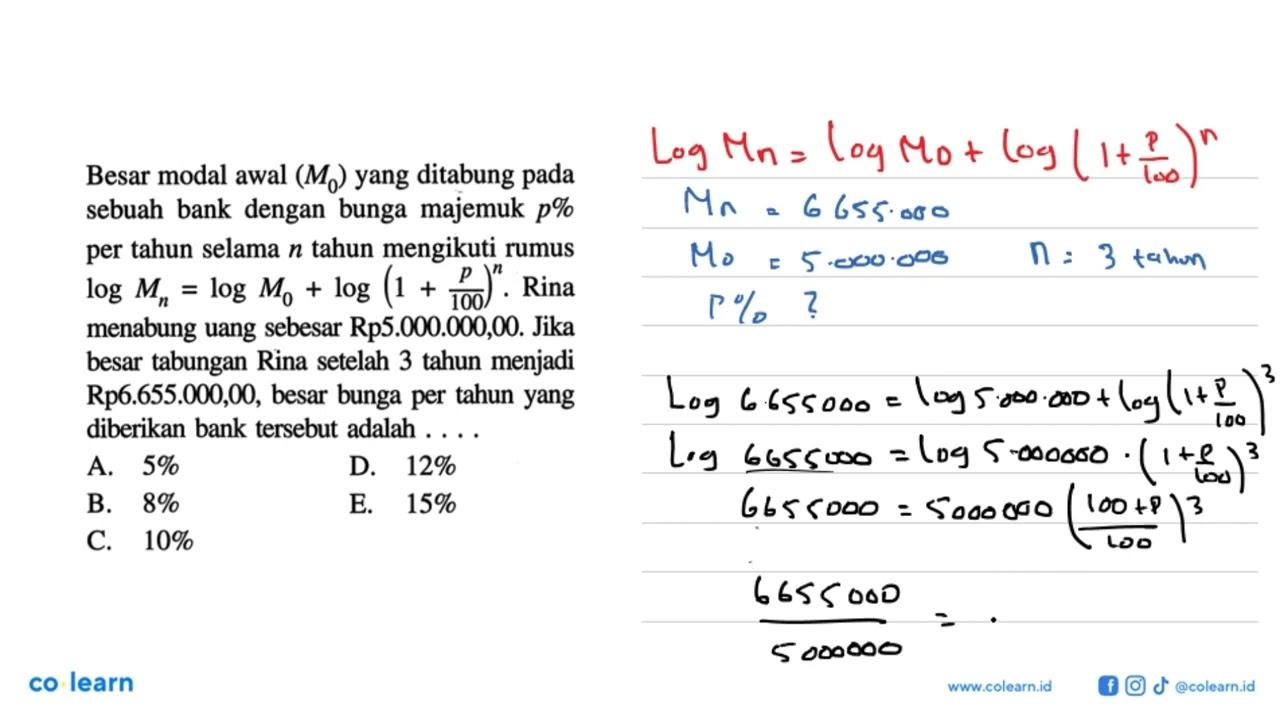 Besar modal awal (M₀) yang ditabung pada
sebuah bank dengan bunga majemuk p%
per tahun selama n tahun mengikuti rumus
log Mₙ = log M₀ + log (1 + p/100)ⁿ. Rina
menabung uang sebesar Rp5.000.000,00. Jika
besar tabungan Rina setelah 3 tahun menjadi
Rp6.655.000,00, besar bunga per tahun yang
diberikan bank tersebut adalah . . . .
A. 5%
D. 12%
B. 8%
E. 15%
C. 10%
Log Mn = log Mo + log (1 + p/100)ⁿ
Mn = 6 655.000
Mo = 5.000.000 n = 3 tahun
P% ?
Log 6.655000 = log 5.000.000 + log (1 + p/100)³
Log 6655000 = log 5.000000 . (1 + p/100)³
6655000 = 5000000 (100 + p/100)³
6655000/5000000 = .
co learn
www.colearn.id
@colearn.id